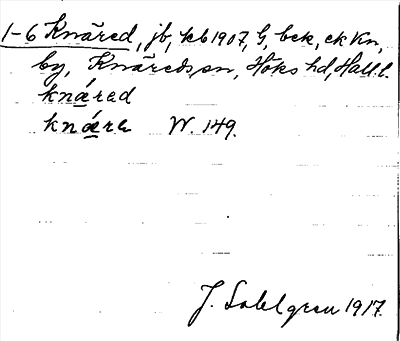 1-6 Knäred, jb, kb 1907, G, bek, ek Kn,
by, Knäreds sn, Höks hd, Hall. l.
knǽred
knǽre W. 149.
J. Sahlgren 1917.